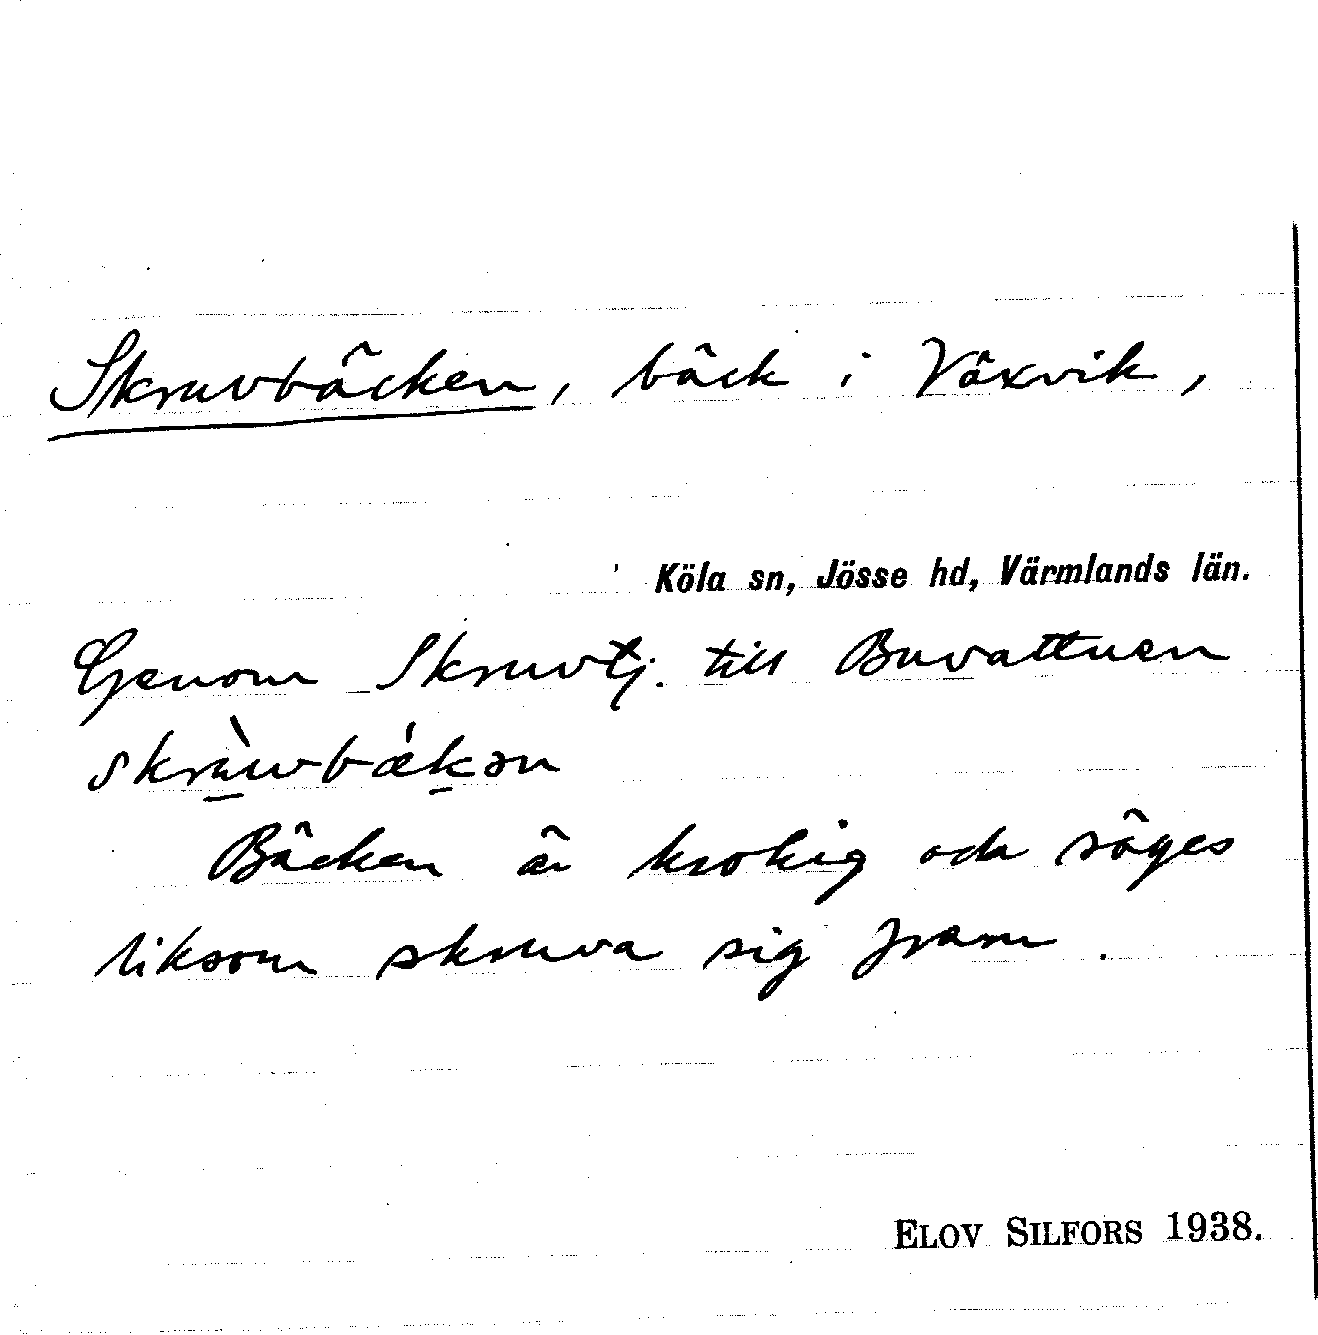 Skruvbäcken, bäck i Växvik,
Köla sn, Jösse hd, Värmlands län.
Genom Skruvtj. till Buvattnen
skrùwbǽkən
Bäcken är krokig och säges
liksom skruva sig fram.
ELOV SILFORS 1938.